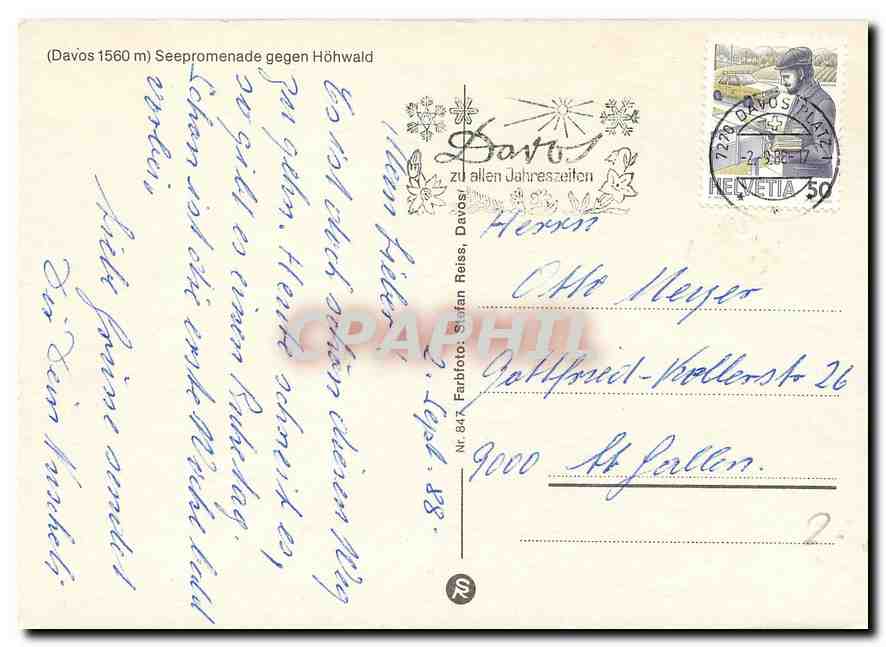 (Davos 1560 m) Seepromenade gegen Höhwald
Davos
zu allen Jahreszeiten
7270 DAVOS PLATZ 1
-2.-9.88-17
HELVETIA 50
Nr. 847 Farbfoto: Stefan Reiss, Davos
SR
CPAPHIL
Herrn
Otto Meyer
Gottfried-Kellerstr 26
9000 St Gallen.
2.
2. Sept. 88.
Mein Lieber!
Es ist doch schön diesen Weg
zu gehn. Heute schneit es,
so gibt es einen Ruhetag.
Schon ist die erste Woche bald
vorbei.
Liebe Grüsse sendet
Dir Dein